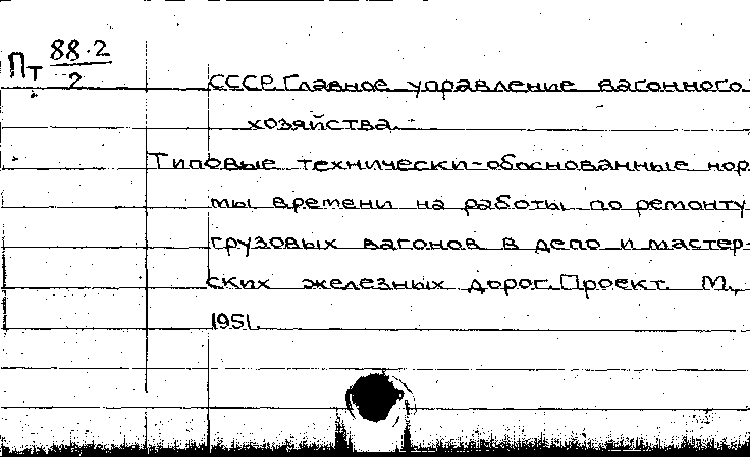 Пт 88.2
2
СССР. Главное управление вагонного
хозяйства.
Типовые технически-обоснованные нор
мы времени на работы по ремонту
грузовых вагонов в депо и мастер-
ских железных дорог. Проект. М.,
1951.